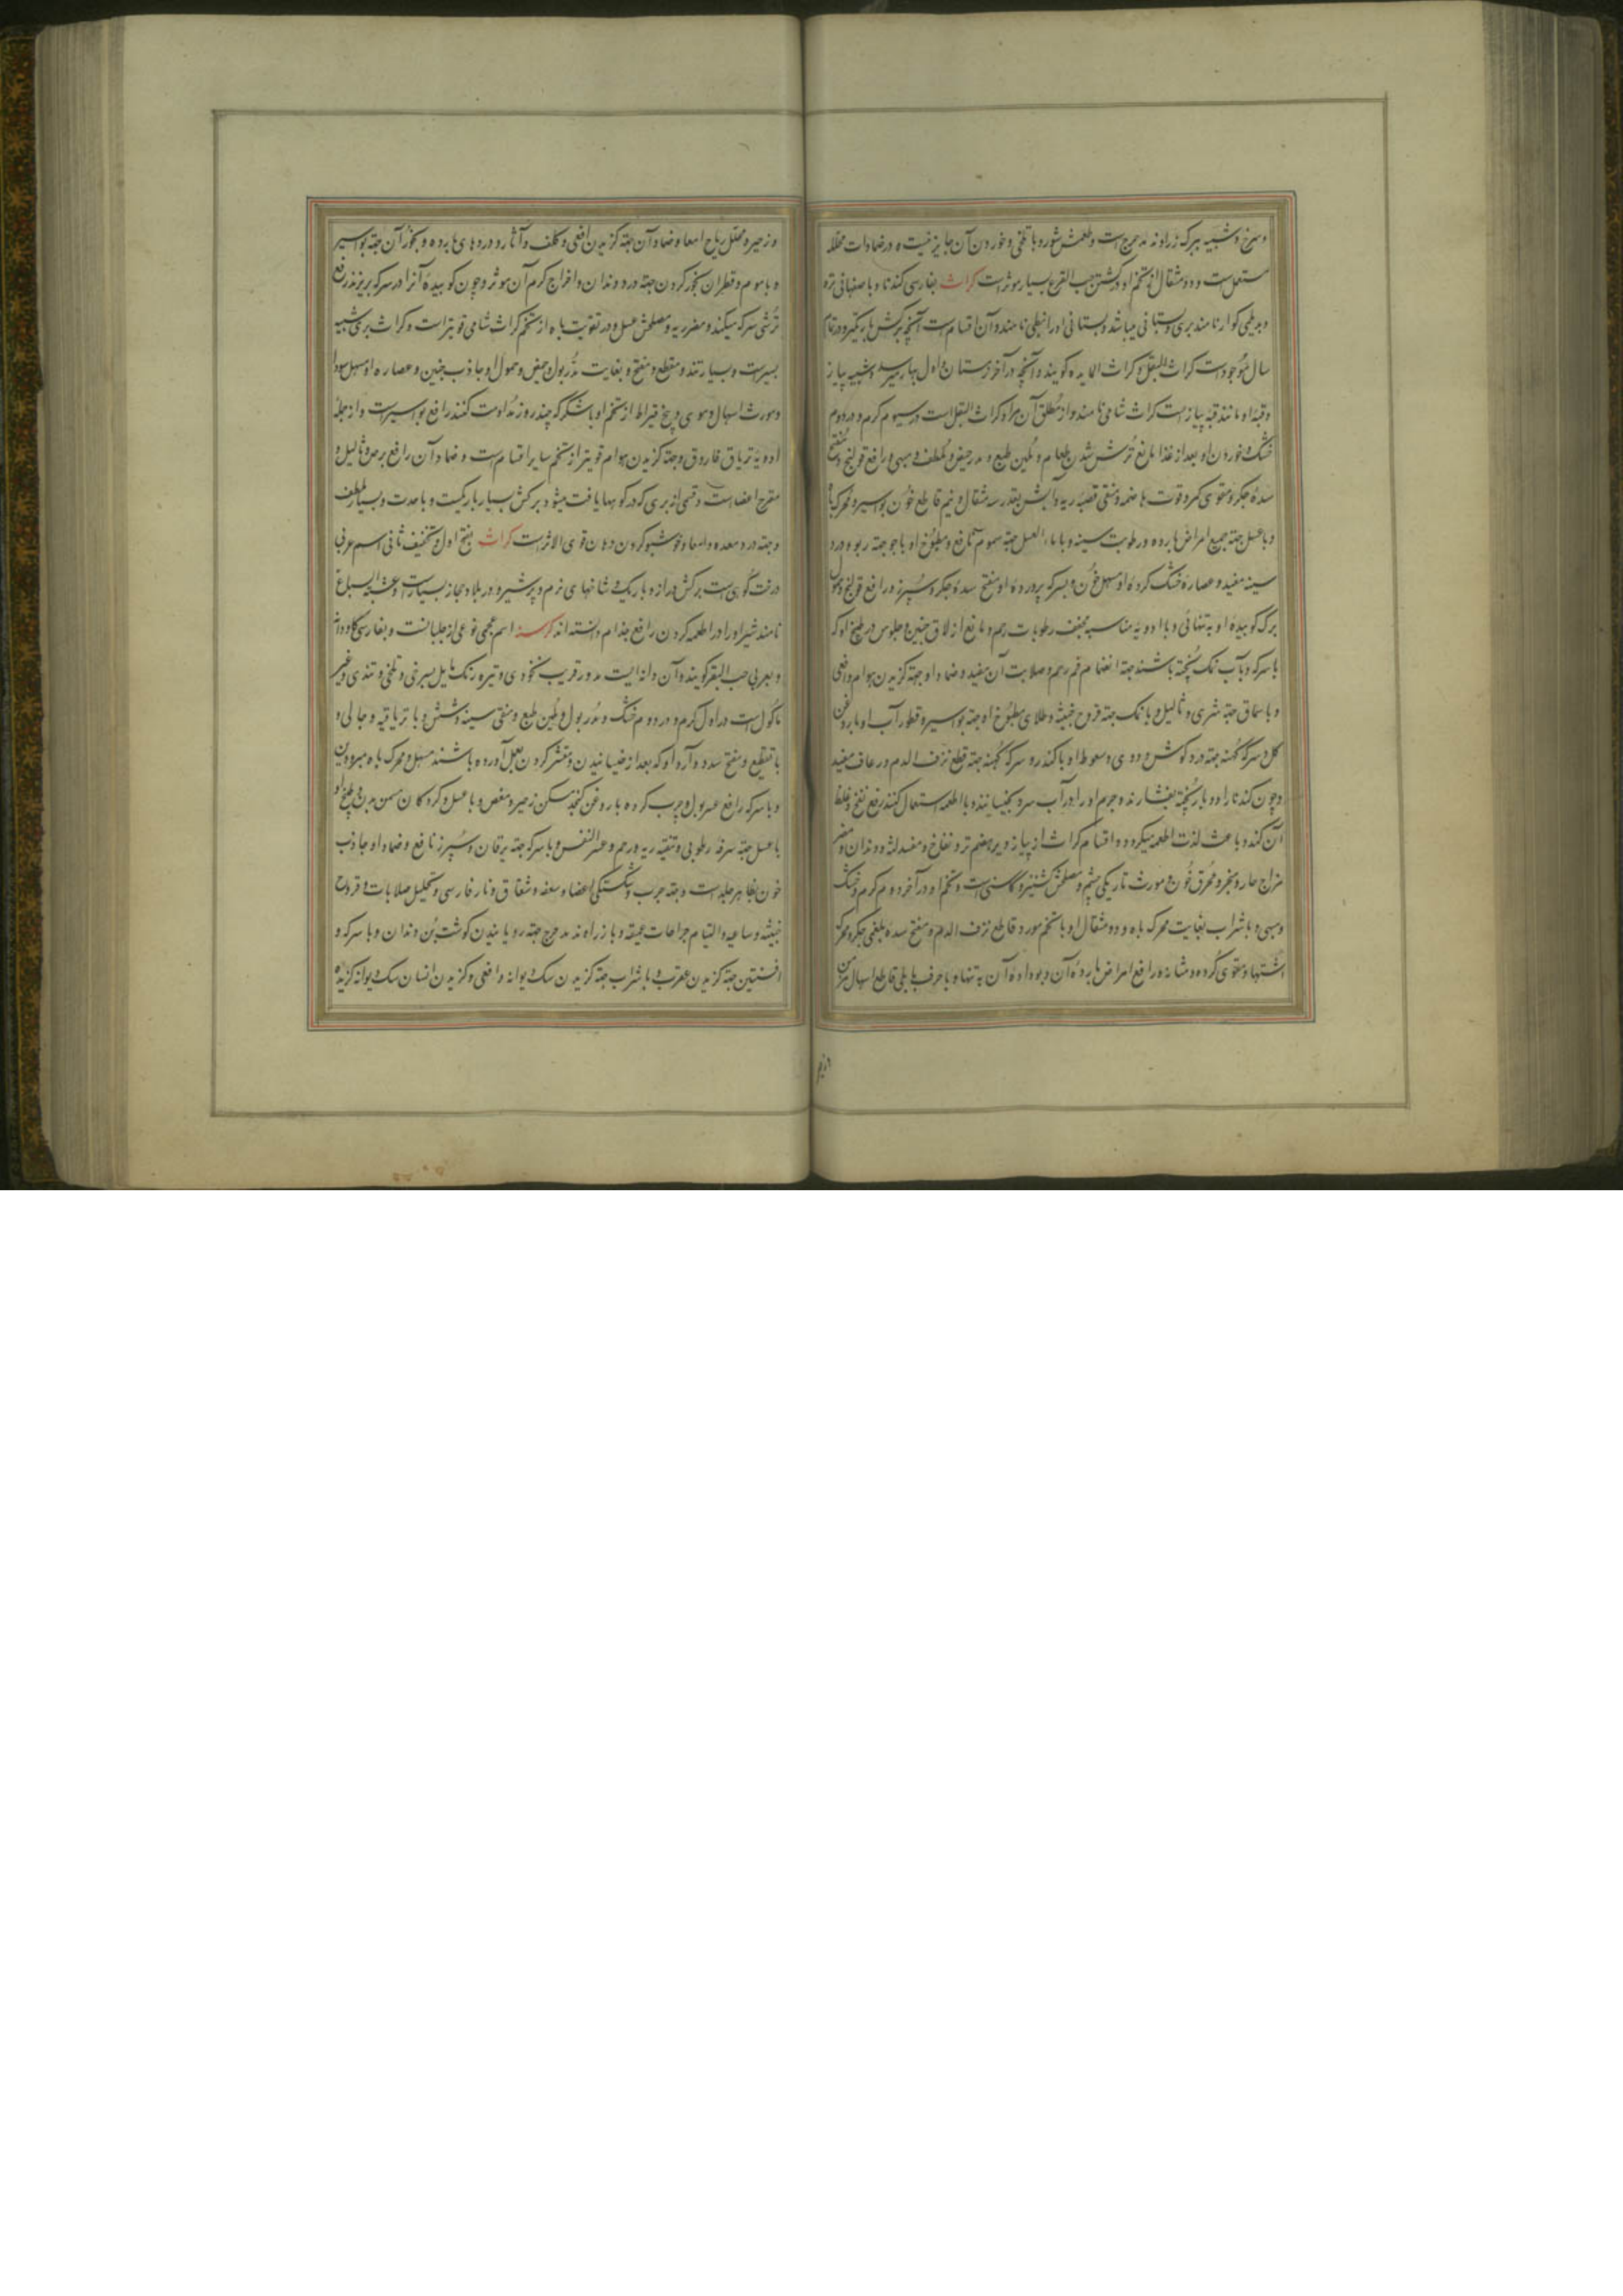 و سرخ و شبیه ببرک زراوند مدحرج است و طعمش شور و با تلخی و خوردن آن جایز نیست و در ضمادات محلله
مستعمل است و دو مثقال از تخم او در کشتن حب القرع بسیار موثر است کراث بفارسی کندنا و باصفهانی تره
و بدیلمی کوار نامند بری و بستانی میباشد و بستانی او را نبطی نامند و آن اقسام است آنچه برکش باریکتر و در تمام
سال موجود است کراث البقل و کراث المایده کویند و آنچه در آخر زمستان و اول بهار میرسد و شبیه پیاز
و قبهٔ او مانند قبهٔ پیاز است کراث شامی نامند و از مطلق آن مراد کراث البقل است در سیوم کرم و در دوم
خشک و خوردن او بعد از غذا مانع ترش شدن طعام و ملین طبع و مدر حیض و ملطف و مبهی و رافع قولنج و مفتح
سدهٔ جکر و مقوی کمر و قوت هاضمه و منقی قصبه ریه و آبش بقدر سه مثقال و نیم قاطع خون بواسیر و محرک باه
و با عسل جهة جمیع امراض بارده و رطوبت سینه و با ماء العسل جهة سموم نافع و مطبوخ او با جو جهة ربو و درد
سینه مفید و عصارهٔ خشک کردهٔ او مسهل خون و بسرکه پروردهٔ او مفتح سدهٔ جکر و سپرز و رافع قولنج و حمول
برک کوبیدهٔ او به تنهائی و با ادویه مناسبه مجفف رطوبات رحم و مانع ازلاق جنین و جلوس در طبیخ او که
با سرکه و با آب نمک پخته باشند جهة انضمام فم رحم و صلابت آن مفید و ضماد او جهة کزیدن هوام و افعی
و با سماق جهة شری و ثالیل و با نمک جهة قروح خبیثه و طلای مطبوخ او جهة بواسیر و قطور آب او با روغن
کل و سرکهٔ کهنه جهة درد کوش و دوی و سعوط او با کندر و سرکهٔ کهنه جهة قطع نزف الدم و رعاف مفید
و چون کندنا را دو بار پخته بفشارند و جرم او را در آب سرد بخیسانند و با اطعمه استعمال کنند رفع نفخ و غلظ
آن کند و باعث لذت اطعمه میکردد و اقسام کراث از پیاز دیرهضم تر و نفاخ و مفسد لثه و دندان و مضر
مزاج حار و مبخر و محرق خون و مورث تاریکی چشم و مصلحش کشنیز و کاسنی است و تخم او در آخر دوم کرم و خشک
و مبهی و با شراب بغایت محرک باه و دو مثقال او با تخم مورد قاطع نزف الدم و مفتح سدهٔ بلغمی جکر و محرک
اشتها و مقوی کرده و مثانه و رافع امراض باردهٔ آن و بو دادهٔ آن به تنها و با حرف بابلی قاطع اسهال مزمن
و زحیر و محلل ریاح امعا و ضماد آن جهة کزیدن افعی و کلف و آثار و دردهای بارده و بخور آن جهة بواسیر
و با موم و قطران بخور کردن جهة درد دندان و اخراج کرم آن موثر و چون کوبیدهٔ آنرا در سرکه بریزند رفع
ترشی سرکه میکند و مضر ریه و مصلحش عسل و در تقویت باه از تخم کراث شامی قویتر است و کراث بری شبیه
بسیر است و بسیار تند و مقطع و مفتح و بغایت مدر بول و حیض و حمول او جاذب جنین و عصاره او مسهل سودا
و مورث اسهال دموی و پنج قیراط از تخم او با شکر که چند روز مداومت کنند رافع بواسیر است و از جمله
ادویهٔ تریاق فاروق و جهة کزیدن هوام قویتر از تخم سایر اقسام است و ضماد آن رافع برص و ثالیل و
مقرح اعضا است و قسمی از بری که در کوهها یافت میشود برکش بسیار باریکست و با حدت و بسیار ملطف
و جهة درد معده و امعا و خوشبو کردن دهان قوی الاثر است کراث بفتح اول و تخفیف ثانی اسم عربی
درخت کوهی است برکش دراز و باریک و شاخهای نرم و پر شیره در بلاد حجاز بسیار است و عشبة السباع
نامند شیر او را در اطعمه کردن رافع جذام دانسته اند کرسنه اسم عجمی نوعی از جلبانست و بفارسی کاودانه
و بعربی حب البقر کویند و آن دانه ایست مدور قریب بنخودی و تیره رنک مایل بسرخی و تلخی و تندی و غیر
ماکول است در اول کرم و در دوم خشک و مدر بول و ملین طبع و منقی سینه و شش و با تریاقیه و جالی و
با تقطیع و مفتح سدد و آرد او که بعد از خیسانیدن و مقشر کردن بعمل آورده باشند مسهل و محرک باه مبرودین
و با سرکه رافع عسر بول و چرب کرده با روغن کنجد مسکن زحیر و مغص و با عسل و کردکان مسمن بدن و طبیخ او
با عسل جهة سرفهٔ رطوبی و تنقیه ریه و رحم و عسر النفس و با سرکه جهة یرقان و سپرز نافع و ضماد او جاذب
خون بظاهر جلد است و جهة جرب و شکستکی اعضا و سعفه و شقاق و نار فارسی و تحلیل صلابات و قروح
خبیثه و ساعیه و التیام جراحات عمیقه و با زراوند مدحرج جهة رویانیدن کوشت بن دندان و با سرکه و
افسنتین جهة کزیدن عقرب و با شراب جهة کزیدن سک دیوانه و افعی و کزیدن انسان سک دیوانه کزیده